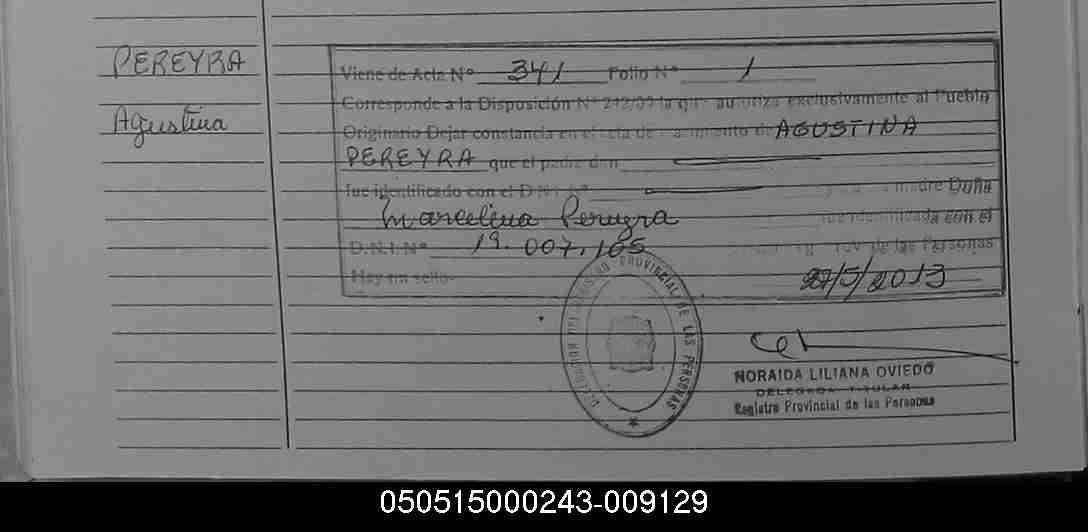 PEREYRA
Agustina
Viene de Acta Nº 341 Folio Nº 1
Corresponde a la Disposición Nº 242/09 la que autoriza exclusivamente al Pueblo
Originario Dejar constancia en el acta de nacimiento de AGUSTINA
PEREYRA que el padre don
fue identificado con el D.N.I. Nº madre Doña
Marcelina Pereyra fue identificada con el
D.N.I. Nº 19.007.165 de las Personas
Hay un sello.
27/5/2013
REGISTRO PROVINCIAL DE LAS PERSONAS
NORAIDA LILIANA OVIEDO
DELEGADA TITULAR
Registro Provincial de las Personas
050515000243-009129